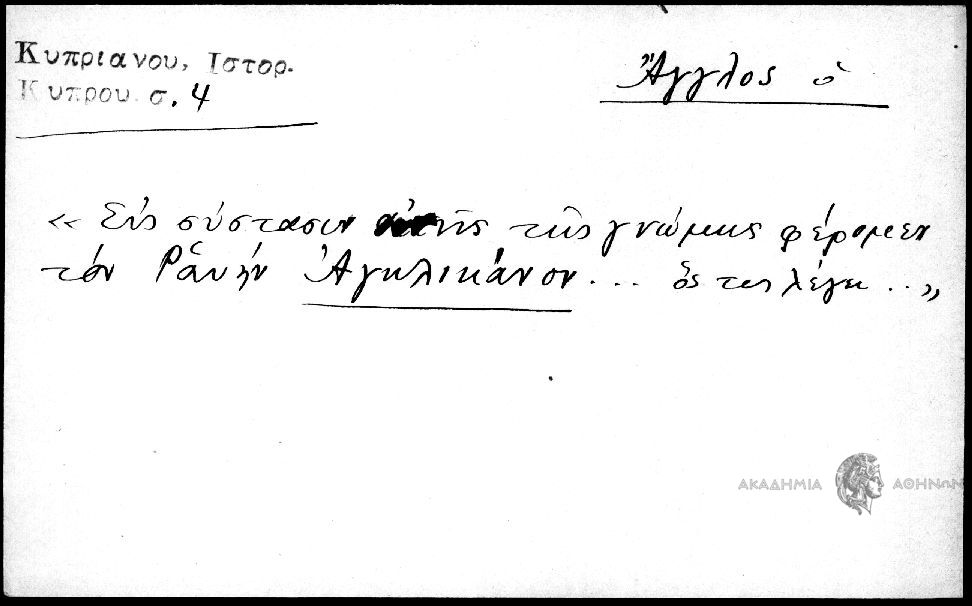 Κυπριανου, Ιστορ.
Κυπρου σ. 4
Ἄγγλος ὁ
« Εἰς σύστασιν αὐτῆς τῆς γνώμης φέρομεν
τόν Ῥᾶυλήν Ἀγκλικάνον ... ὅς τις λέγει .. »
ΑΚΑΔΗΜΙΑ ΑΘΗΝΩΝ